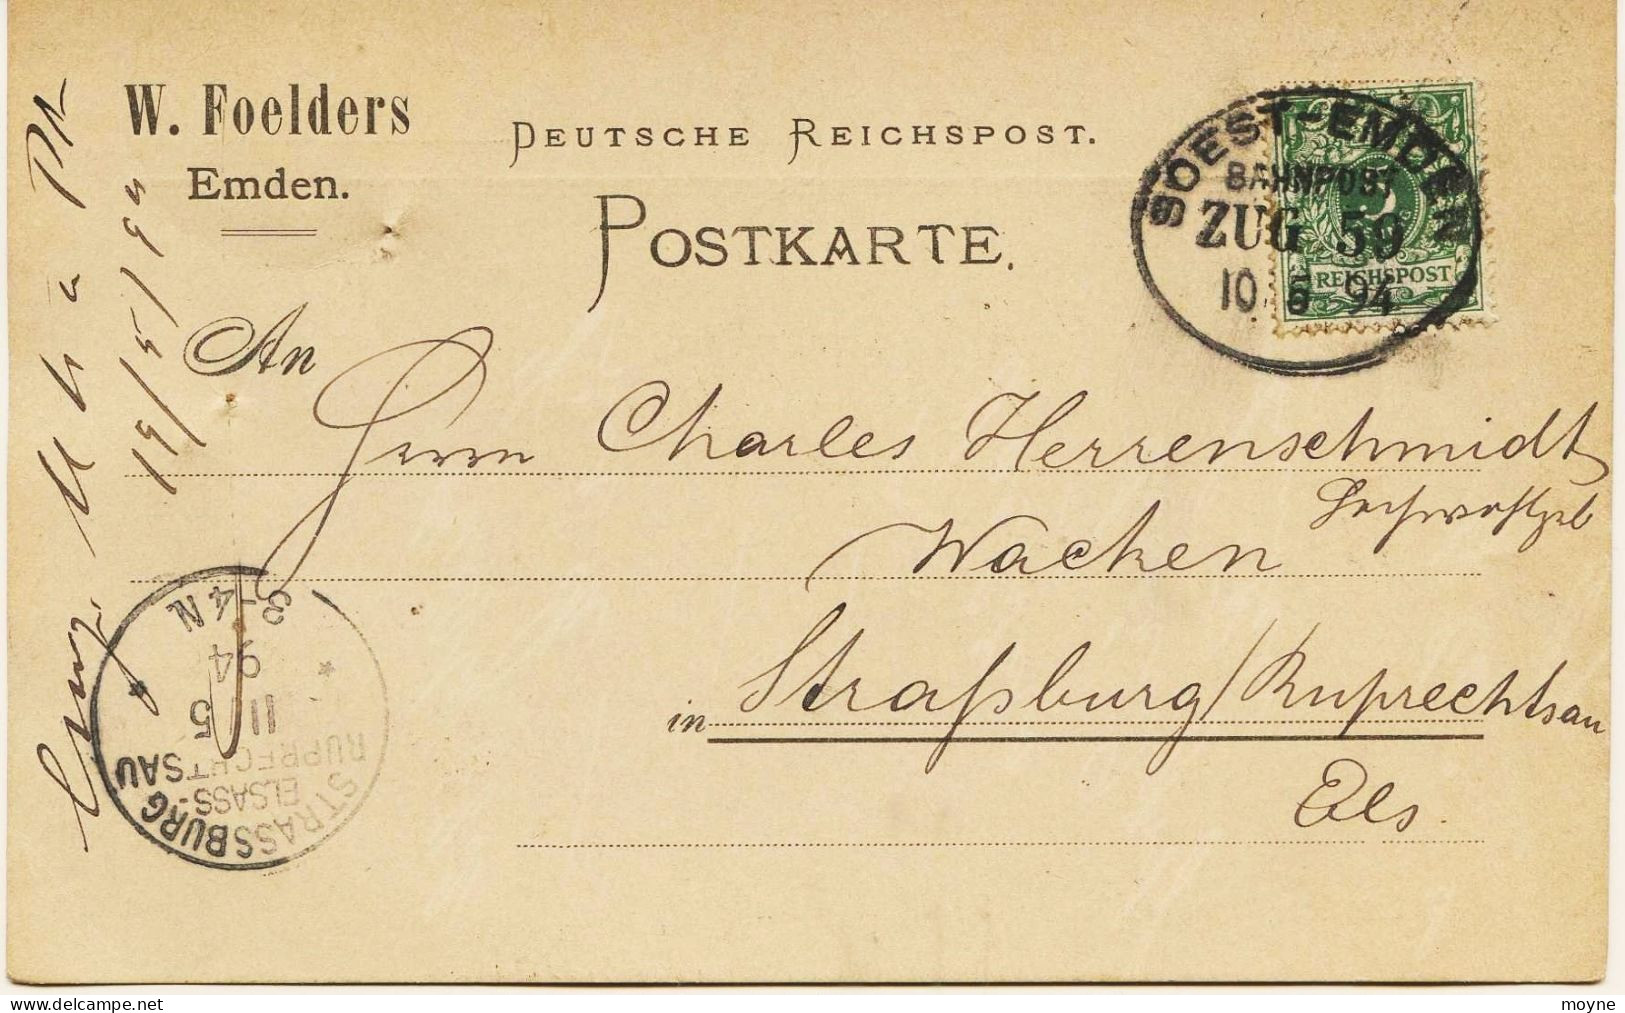 W. Foelders
Emden.
DEUTSCHE REICHSPOST.
POSTKARTE.
SOEST-EMDEN
BAHNPOST
ZUG 59
10 5 94
5
REICHSPOST
An
Herrn Charles Herrenschmidt
Wacken
in Straßburg/Ruprechtsau
Els.
19/5/94
STRASSBURG
ELSASS-
RUPRECHTSAU
11 5
94
3-4N
moyne